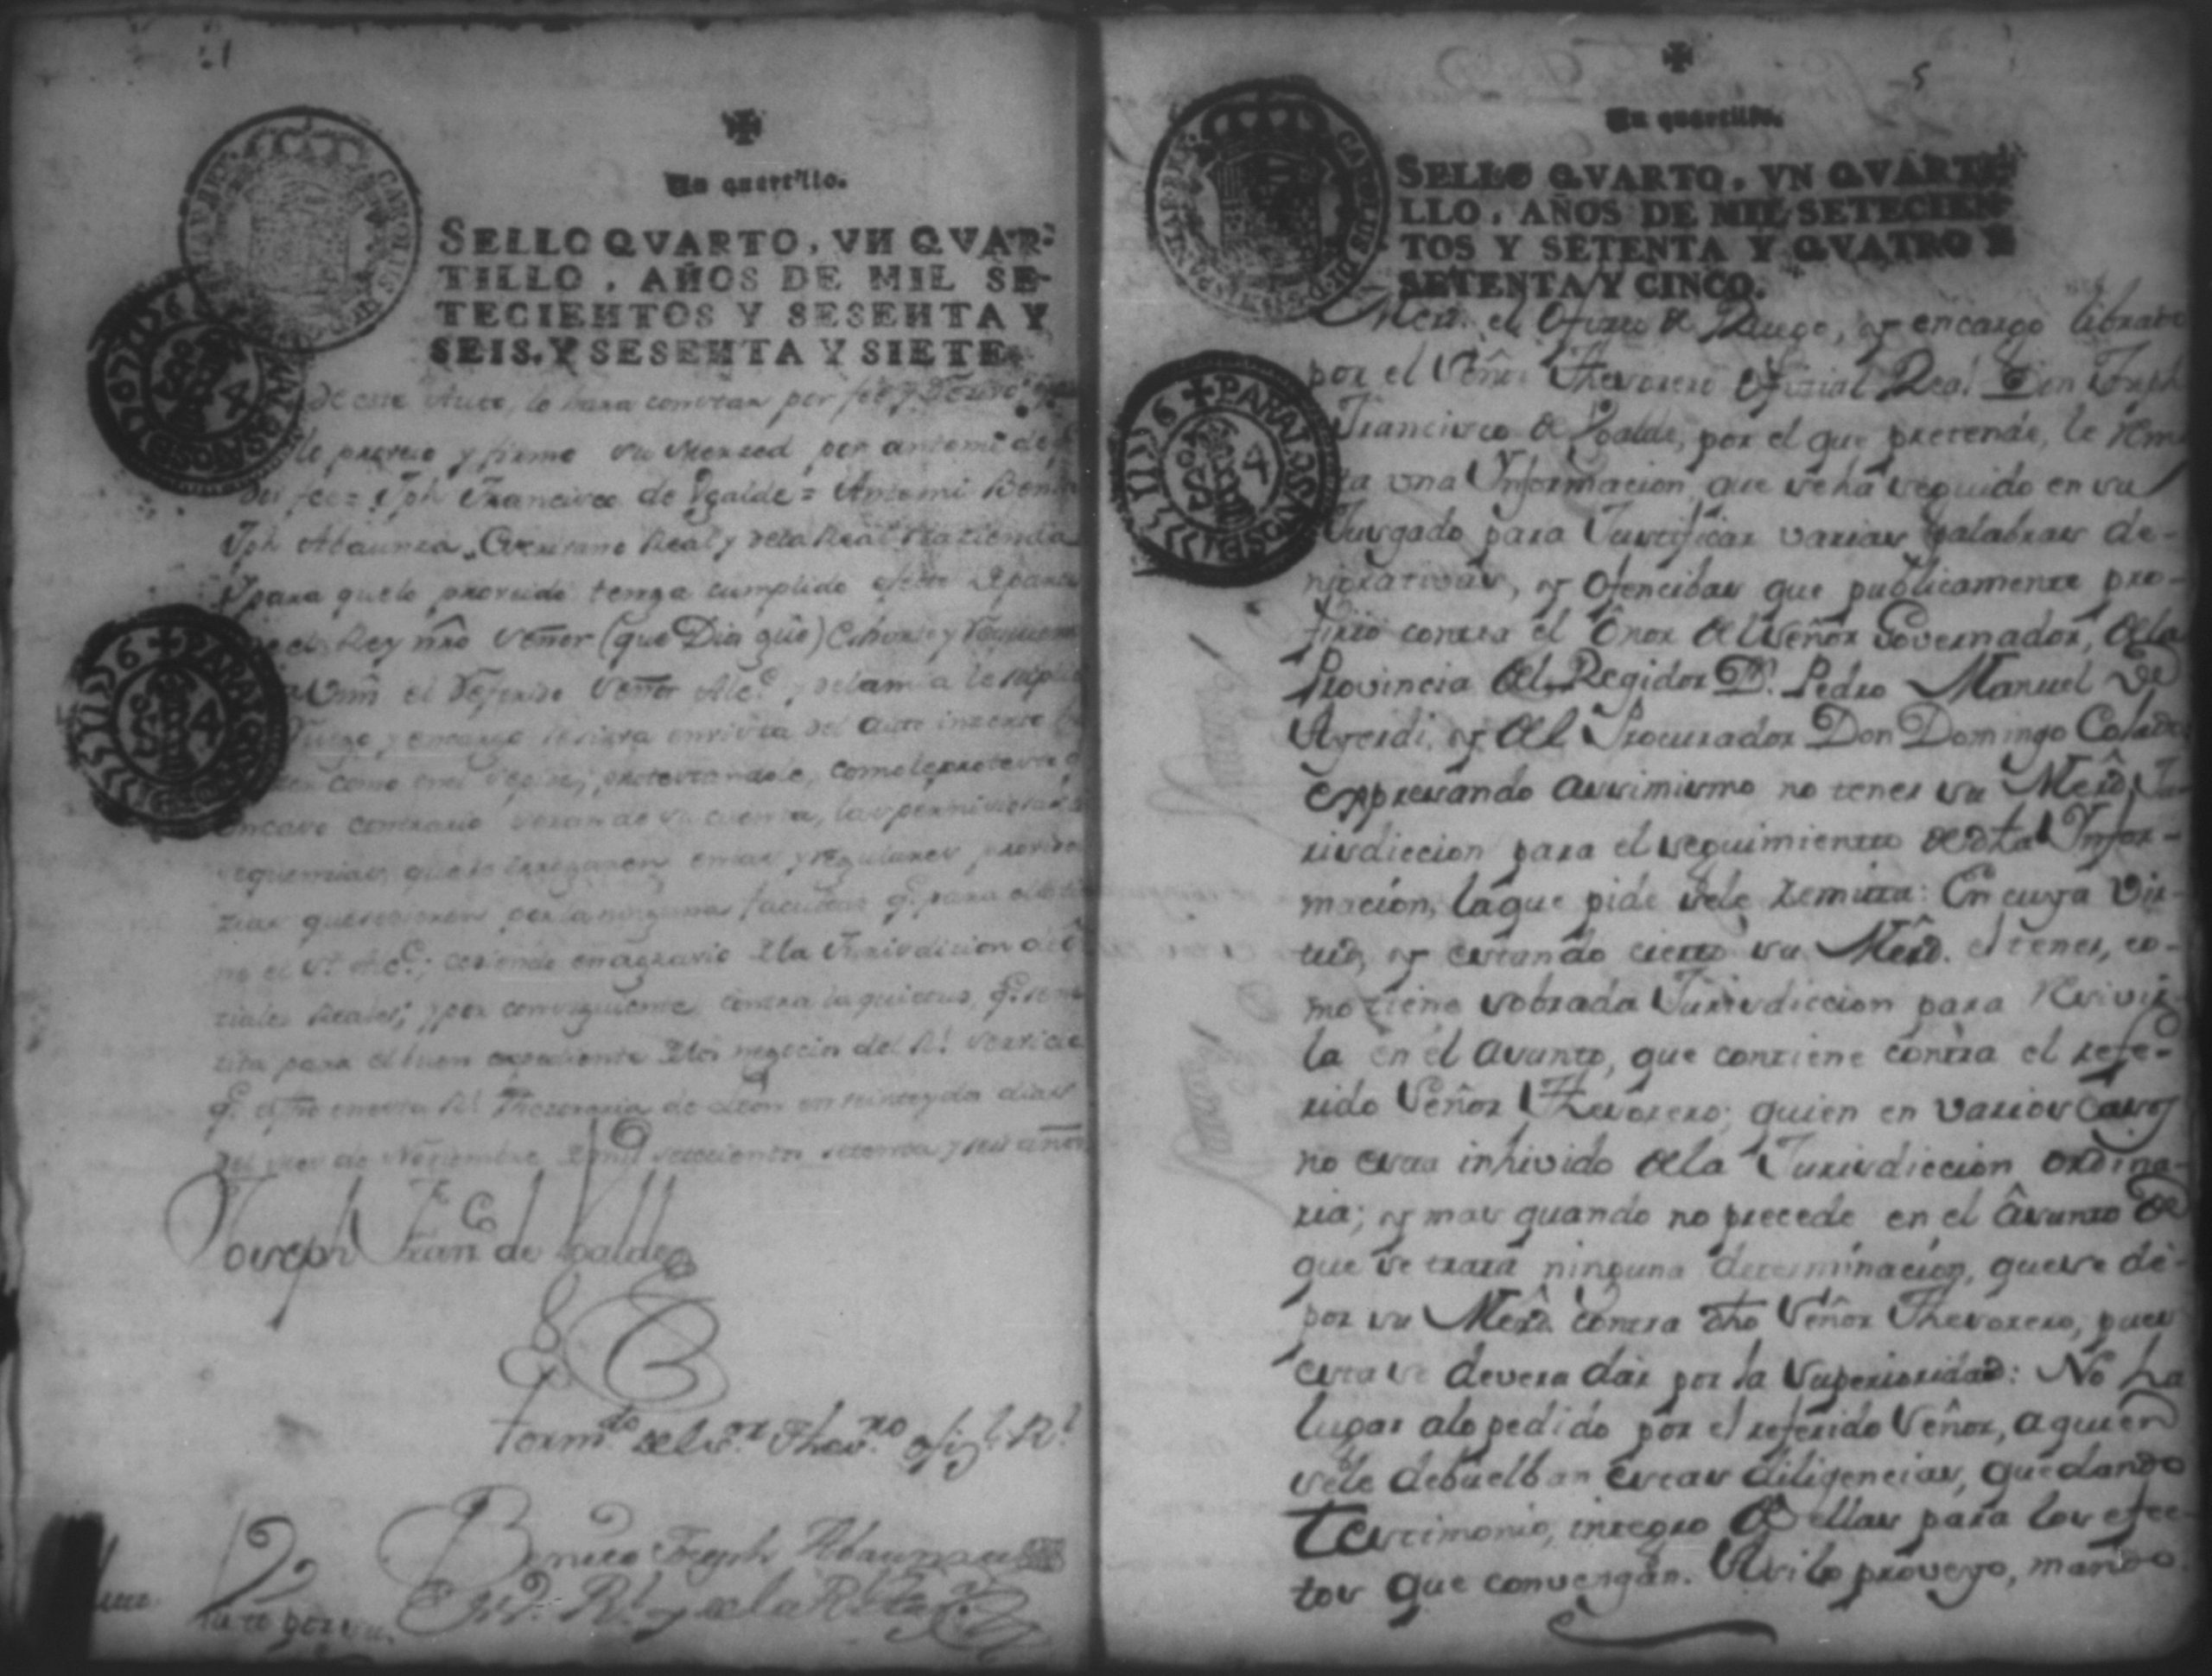 Un quartillo.
SELLO QVARTO, VN QVAR-
TILLO, AÑOS DE MIL SE-
TECIENTOS Y SESENTA Y
SEIS, Y SESENTA Y SIETE.
de este Auto, lo hara constar por fee y
lo proveio y firmo su Merced por antemi de
doi fee= Jph Francisco de Ygalde= Antemi Benito
Jph Abaunza, Escrivano Real y dela Real Hazienda
Y para quelo proveido tenga cumplido efecto de parte
el Rey nrõ Señor (que Dios güe) Exhorto y Requiero
a Vm el referido Señor Alce. y delamia le suplico
Ruego, y encargo vista del auto inserto
como en el se pide, protestandole, como le protesto
encaso contrario seran de su cuenta, las perniciosas
sequencias quese
que para
no el Sr. Alce.; cediendo enagravio dela Jurisdicion
ciales Reales; y por consiguiente contra la quietud, qe.
sita para el buen expediente delos negocios del Rl. Servicio
qe. es fho enesta Rl. Thesoreria de Leon en veinte y dos dias
del mes de Noviembre de mil setecientos setenta y seis años
Joseph Franco. de Ygalde
Por mdo. del Sor. Thesro. ofizl. Rl.
Benito Joseph Abaunza
Esno. Rl. y de la Rl. Hazda.
5
Un quartillo.
SELLO QVARTO, VN QVARTI-
LLO, AÑOS DE MIL SETECIEN-
TOS Y SETENTA Y QVATRO Y
SETENTA Y CINCO.
el Oficio de Ruego, y encargo librado
por el Señor Thesorero Oficial Real Don Joseph
Francisco de Ygalde, por el que pretende, le remi-
ta una Ynformacion, que se ha seguido en su
Jusgado para Justificar varias palabras de-
nigrativas, y Ofencibas que publicamente pro-
firio contra el Onor del Señor Governador, de la
Provincia del Regidor Dn. Pedro Manuel de
Ayerdi, y del Procurador Don Domingo Cabeda
expresando assimismo no tener su Merd. Ju-
risdiccion para el seguimiento de dha Ynfor-
macion, laque pide sele remita: En cuya Vir-
tud, y estando cierto su Merd. el tener, co-
mo tiene sobrada Jurisdiccion para resivir-
la en el asunto, que contiene contra el refe-
rido Señor Thesorero; quien en varios casos
no esta inhivido dela Jurisdiccion ordina-
ria; y mas quando no precede en el asunto de
que se trata ninguna determinacion, quese dé
por su Merd. contra dho Señor Thesorero, pues
esta se devera dar por la Superioridad: No ha
lugar alo pedido por el referido Señor, a quien
sele debuelban estas diligencias, quedando
testimonio, integro de ellas para los efec-
tos que convengan. Assi lo proveyo, mando